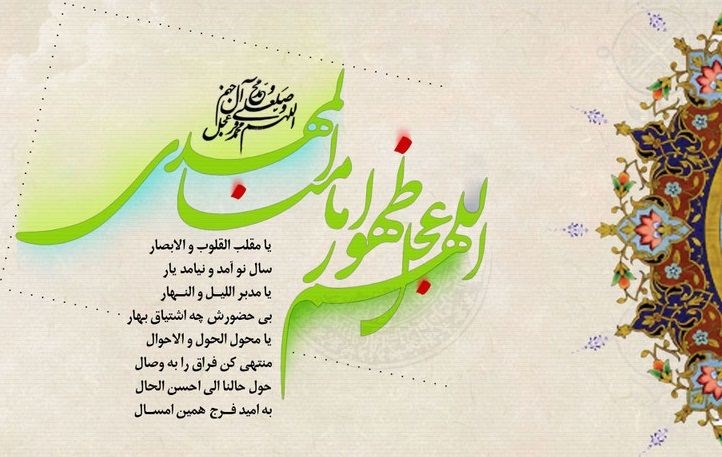 اللهم صل علی محمد و آل محمد و عجل فرجهم
اللهم عجل ظهور امامنا المهدی
یا مقلب القلوب و الابصار
سال نو آمد و نیامد یار
یا مدبر اللیـل و النـهار
بی حضورش چه اشتیاق بهار
یا محول الحول و الاحوال
منتهی کن فراق را به وصال
حول حالنا الی احسن الحال
به امید فـرج همین امسـال